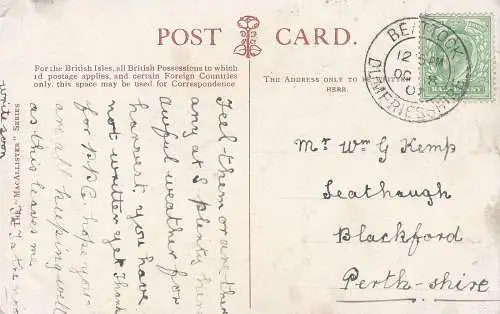 POST CARD.
For the British Isles, all British Possessions to which
1d postage applies, and certain Foreign Countries
only, this space may be used for Correspondence
THE ADDRESS ONLY TO BE WRITTEN
HERE.
BEATTOCK
12
PM
OC 8
DUMFRIESSHIRE
HALFPENNY
Mr Wm G Kemp
Seathaugh
Blackford
Perth-shire
Feel them or are ther
any at S plenty her
awful weather for
harvest, you have
not written yet Thank
for P.P.C. hope you
are all keeping well
as this leaves me.
write soon
THE "MACALLISTER" SERIES